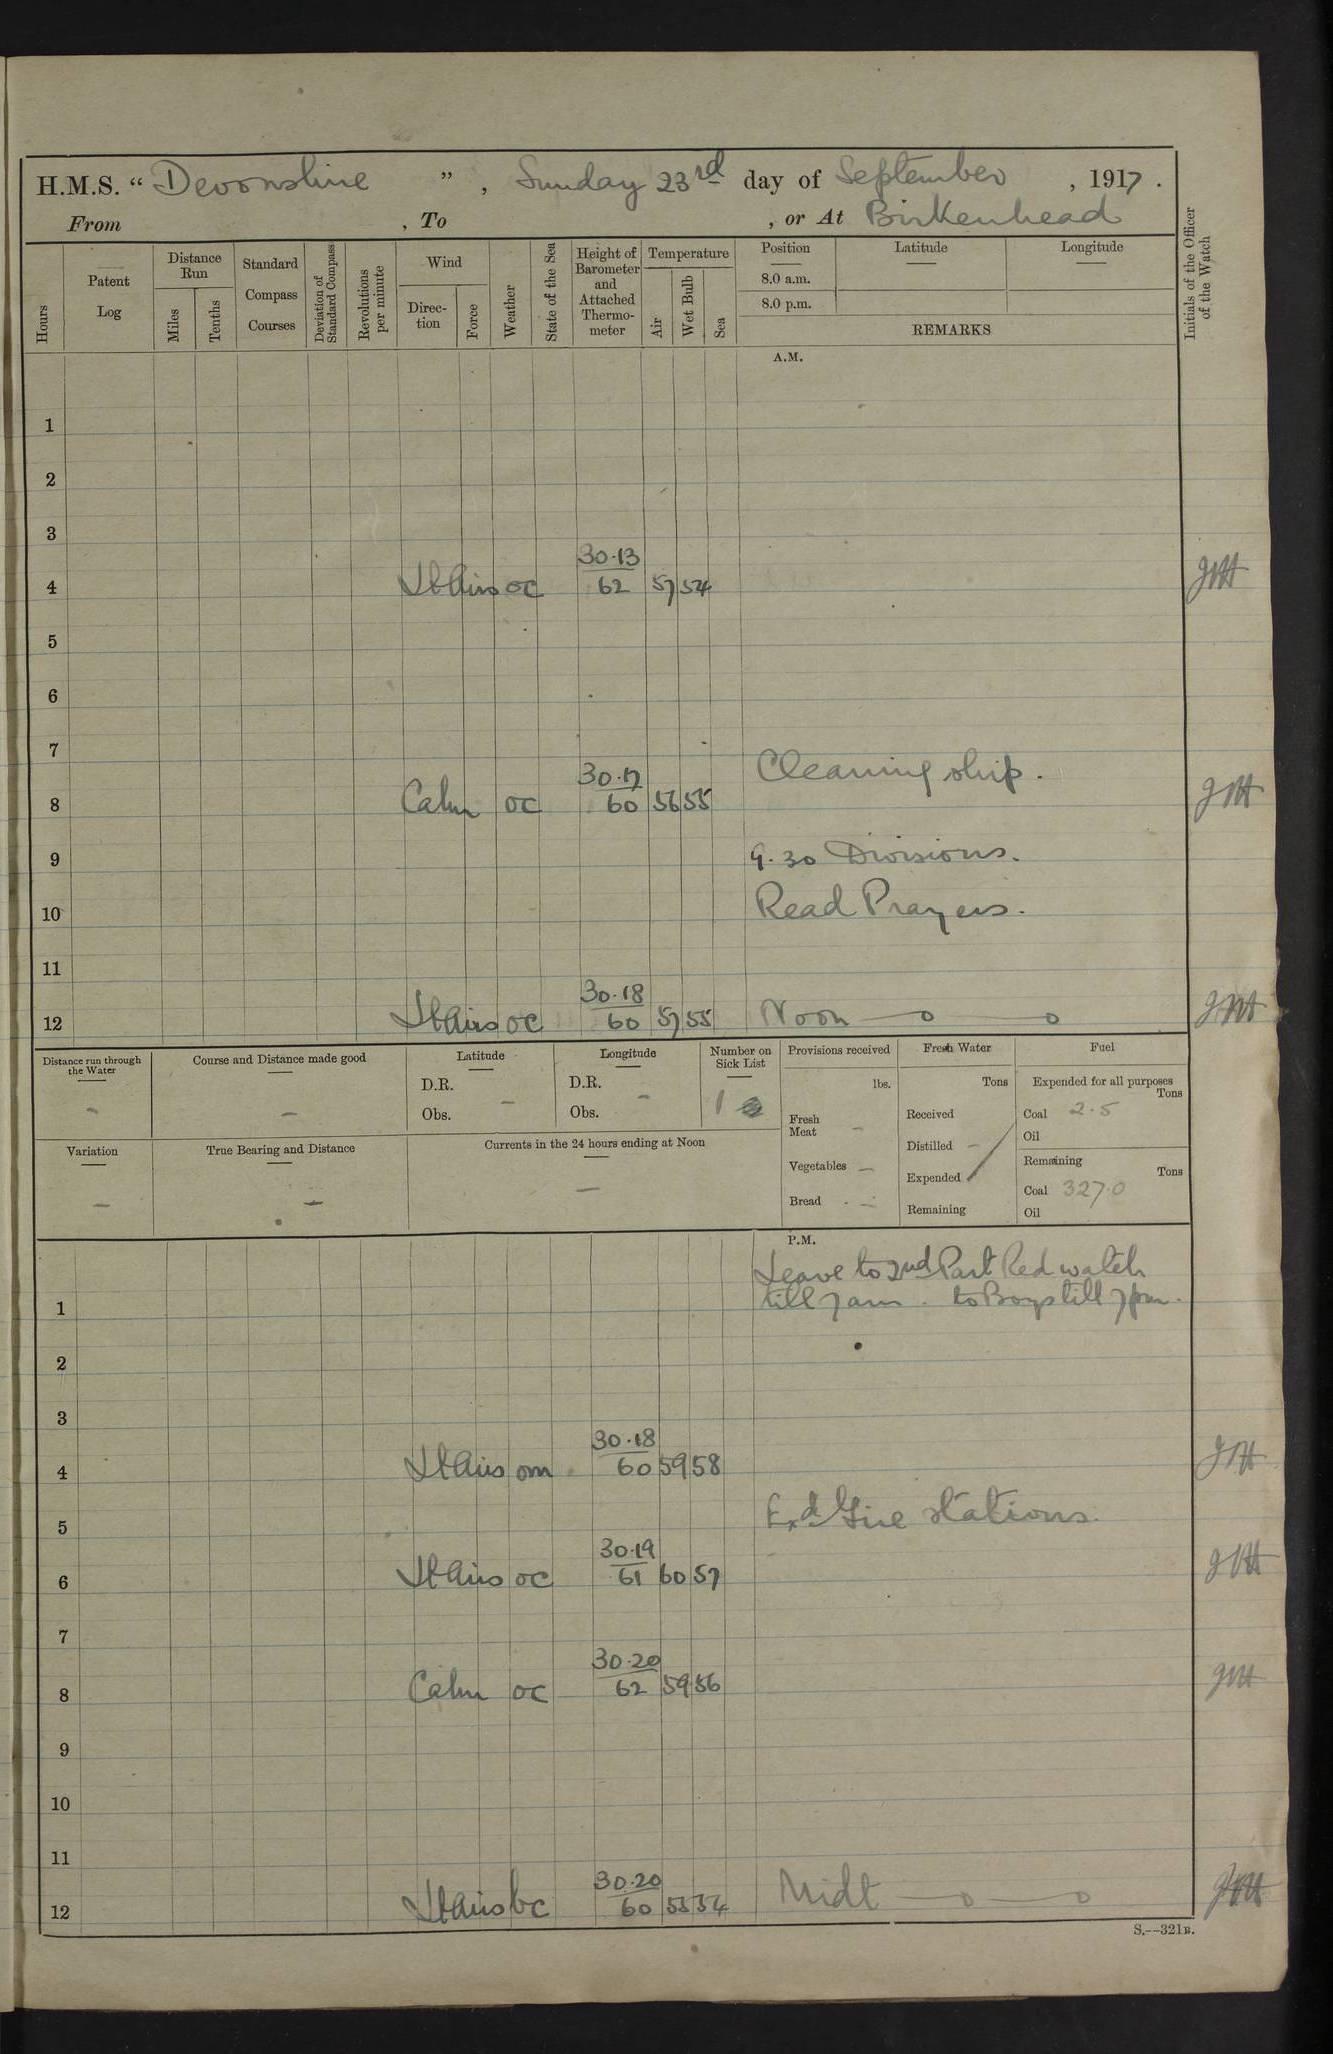 H.M.S. “ Devonshire ” , Sunday 23rd day of September , 1917 .
From , To , or At Birkenhead
Hours
Patent Log
Distance Run
Miles
Tenths
Standard Compass Courses
Deviation of Standard Compass
Revolutions per minute
Wind
Direc-tion
Force
Weather
State of the Sea
Height of Barometer and Attached Thermo-meter
Temperature
Air
Wet Bulb
Sea
Position
8.0 a.m.
8.0 p.m.
Latitude
Longitude
REMARKS
Initials of the Officer of the Watch
A.M.
1
2
3
30·13
4 Lt Airs oc 62 57 54
5
6
7
Cleaning ship.
30·17
8 Calm oc 60 56 55
9 9.30 Divisions.
10 Read Prayers.
11
30·18
12 Lt Airs oc 60 57 55 Noon
Distance run through the Water
Course and Distance made good
Latitude
D.R.
Obs. –
Longitude
D.R. –
Obs.
Number on Sick List
1
Provisions received
lbs.
Fresh Meat –
Vegetables –
Bread –
Fresh Water
Tons
Received
Distilled –
Expended
Remaining
Fuel
Expended for all purposes
Tons
Coal 2·5
Oil
Remaining
Tons
Coal 327·0
Oil
Variation
–
True Bearing and Distance
–
Currents in the 24 hours ending at Noon
–
P.M.
Leave to 2nd Part Red watch
1 till 7 am. to Boys till 7 pm.
2
3
30·18
4 Lt Airs om 60 59 58
5 Exd Fire stations.
30·19
6 Lt Airs oc 61 60 57
7
30·20
8 Calm oc 62 59 56
9
10
11
30·20
12 Lt Airs bc 60 55 54 Midt
S.--321B.